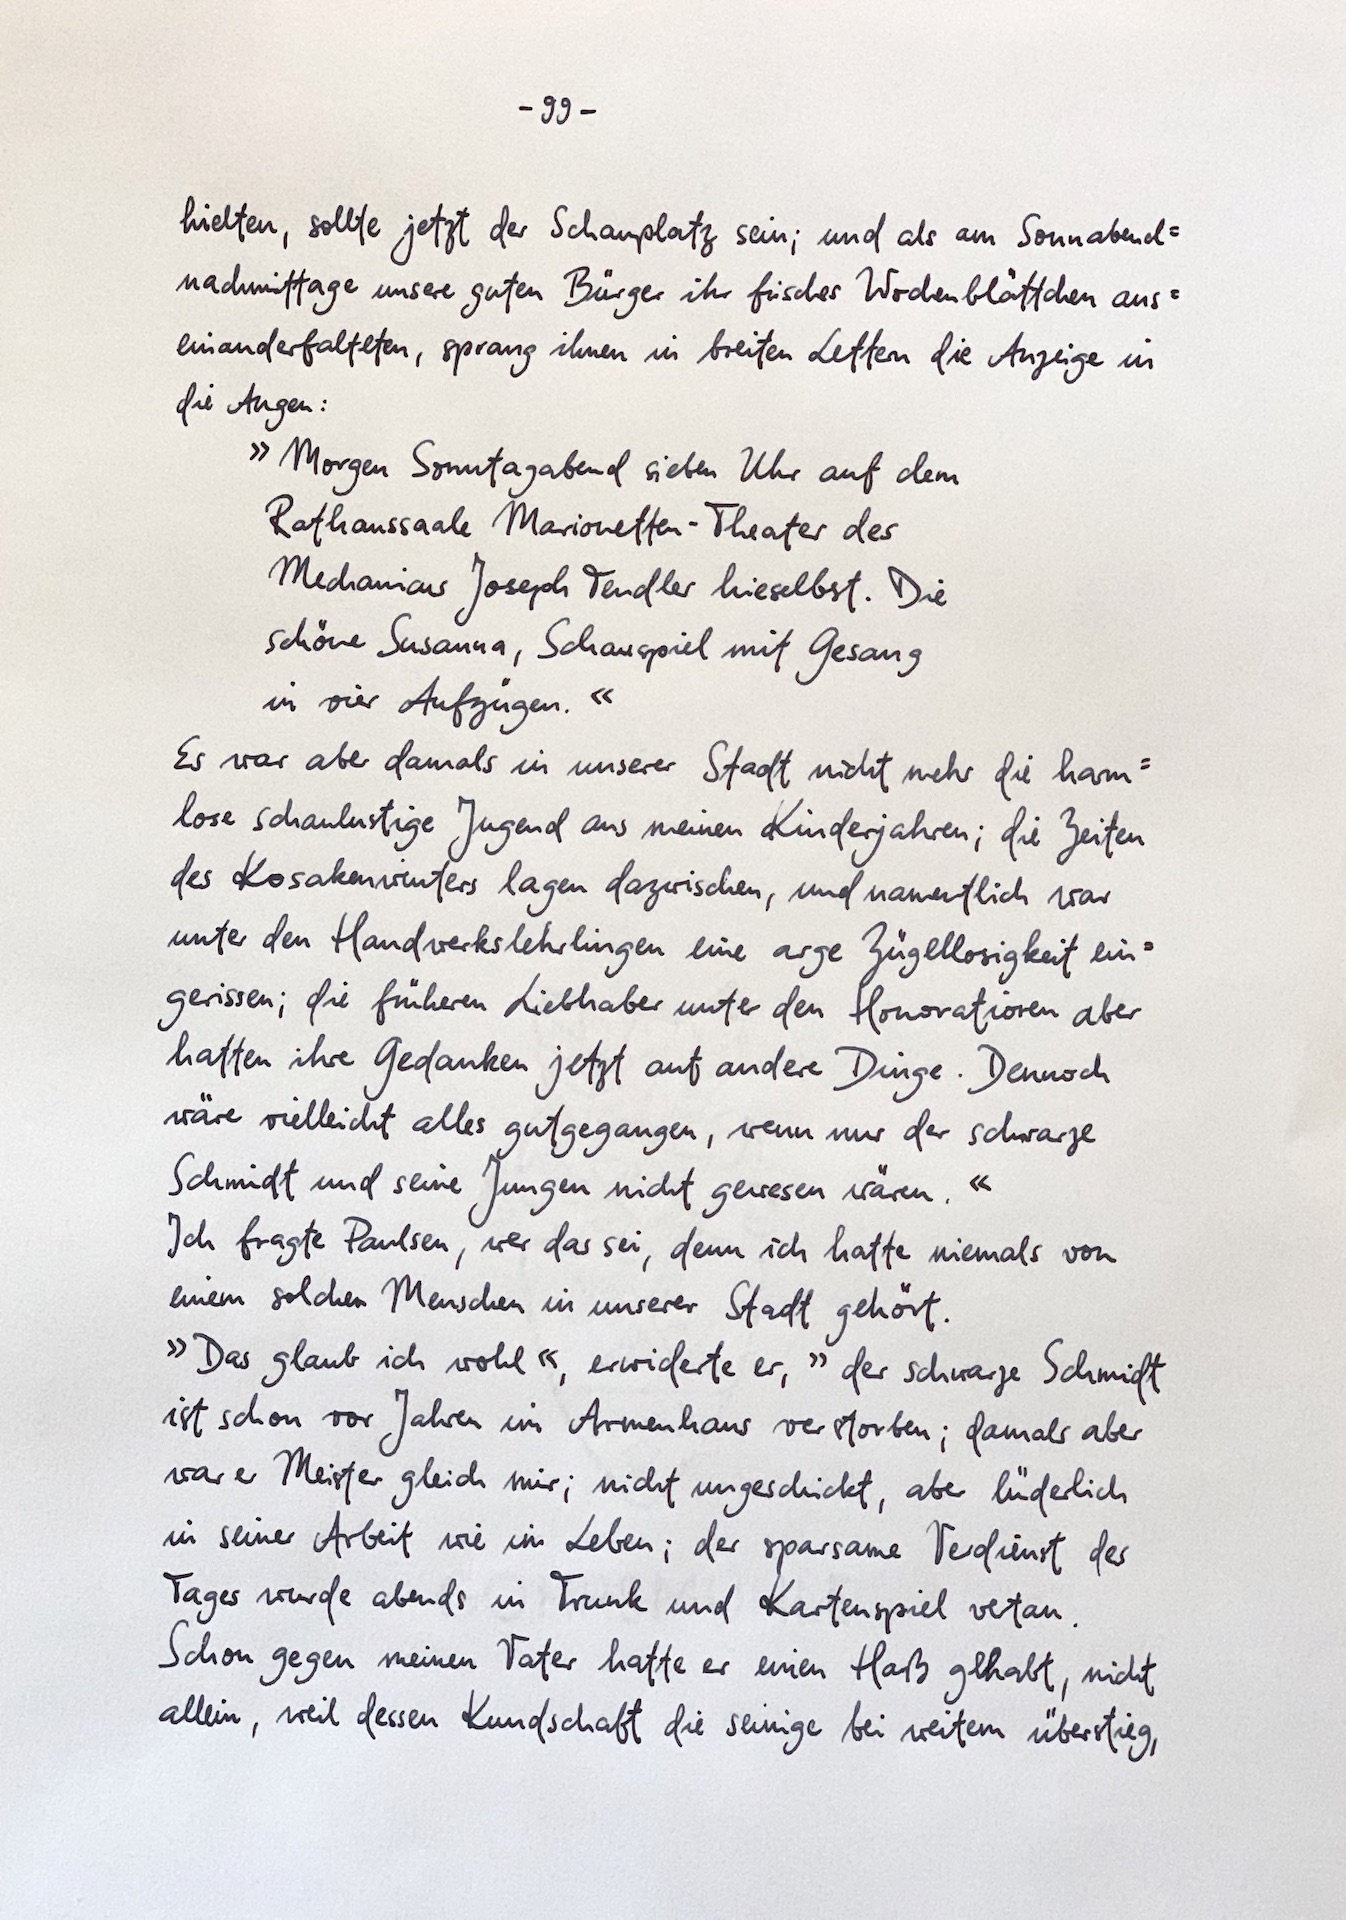 - 99 -
hielten, sollte jetzt der Schauplatz sein; und als am Sonnabend=
nachmittage unsere guten Bürger ihr frisches Wochenblättchen aus=
einanderfalteten, sprang ihnen in breiten Lettern die Anzeige in
die Augen:
»Morgen Sonntagabend sieben Uhr auf dem
Rathaussaale Marionetten-Theater des
Mechanicus Joseph Tendler hieselbst. Die
schöne Susanna, Schauspiel mit Gesang
in vier Aufzügen.«
Es war aber damals in unserer Stadt nicht mehr die harm=
lose schaulustige Jugend aus meinen Kinderjahren; die Zeiten
des Kosakenwinters lagen dazwischen, und namentlich war
unter den Handwerkslehrlingen eine arge Zügellosigkeit ein=
gerissen; die früheren Liebhaber unter den Honoratioren aber
hatten ihre Gedanken jetzt auf andere Dinge. Dennoch
wäre vielleicht alles gutgegangen, wenn nur der schwarze
Schmidt und seine Jungen nicht gewesen wären.«
Ich fragte Paulsen, wer das sei, denn ich hatte niemals von
einem solchen Menschen in unserer Stadt gehört.
»Das glaub ich wohl«, erwiderte er, »der schwarze Schmidt
ist schon vor Jahren im Armenhaus verstorben; damals aber
war er Meister gleich mir; nicht ungeschickt, aber lüderlich
in seiner Arbeit wie im Leben; der sparsame Verdienst des
Tages wurde abends in Trunk und Kartenspiel vertan.
Schon gegen meinen Vater hatte er einen Haß gehabt, nicht
allein, weil dessen Kundschaft die seinige bei weitem überstieg,